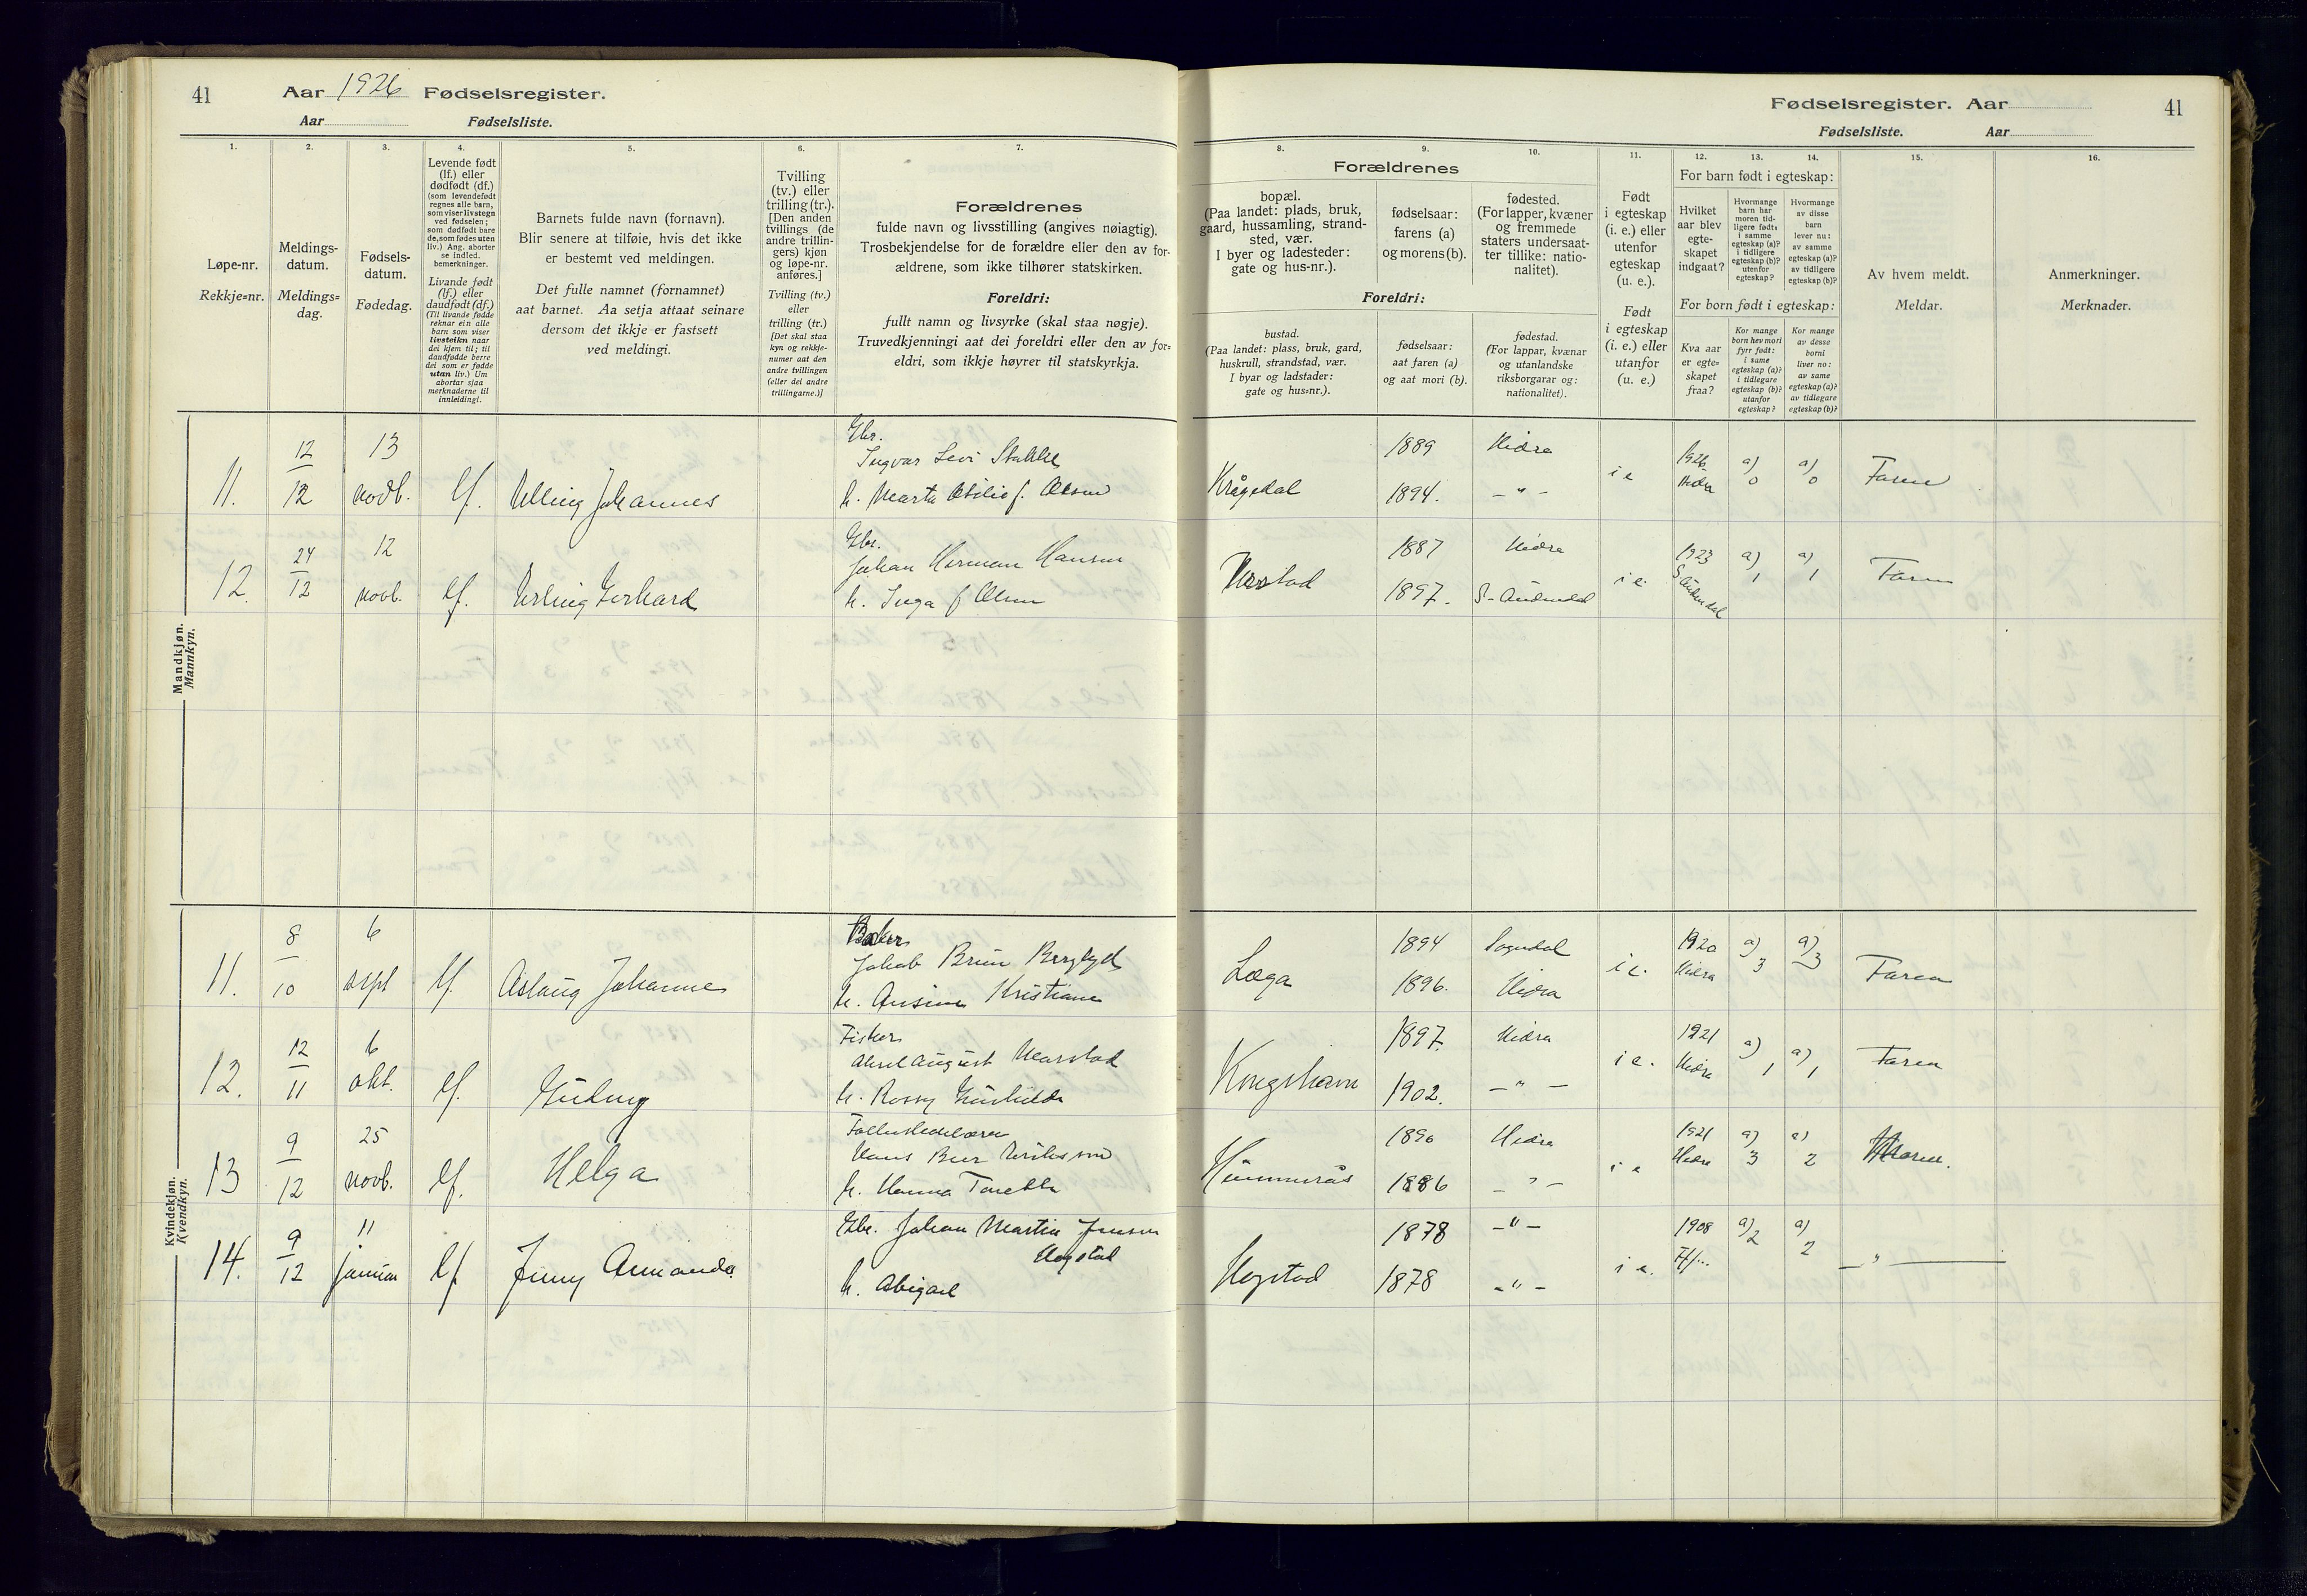 41
Aar 1926 Fødselsregister.
Aar Fødselsliste.
1.
2.
3.
4.
5.
6.
7.
Løpe-nr.
Rekkje=nr.
Meldings-
datum.
Meldings=
dag.
Fødsels-
datum.
Fødedag.
Levende født
(lf.) eller
dødfødt (df.)
(som levendefødt
regnes alle barn,
som viser livstegn
ved fødselen;
som dødfødt bare
de, som fødes uten
liv.) Ang. aborter
se indled.
bemerkninger.
Livande født
(lf.) eller
daudfødt (df.)
(Til livande fødde
reknar ein alle
barn som viser
livsteikn naar
dei kjem til; til
daudfødde berre
dei som er fødde
utan liv.) Um
abortar sjaa
merknaderne til
innleidingi.
Barnets fulde navn (fornavn).
Blir senere at tilføie, hvis det ikke
er bestemt ved meldingen.
Det fulle namnet (fornamnet)
aat barnet. Aa setja attaat seinare
dersom det ikkje er fastsett
ved meldingi.
Tvilling
(tv.) eller
trilling (tr.).
[Den anden
tvillings (de
andre trillin-
gers) kjøn
og løpe-nr.
anføres.]
Tvilling (tv.)
eller
trilling (tr.)
[Det skal staa
kyn og rekkje-
numer aat den
andre tvillingen
(eller dei andre
trillingarne.)]
Forældrenes
fulde navn og livsstilling (angives nøiagtig).
Trosbekjendelse for de forældre eller den av for-
ældrene, som ikke tilhører statskirken.
Foreldri:
fullt namn og livsyrke (skal staa nøgje).
Truvedkjenningi aat dei foreldri eller den av for=
eldri, som ikkje høyrer til statskyrkja.
Fødselsregister. Aar
41
Fødselsliste. Aar
8.
9.
10.
11.
12.
13.
14.
15.
16.
Forældrenes
bopæl.
(Paa landet: plads, bruk,
gaard, hussamling, strand-
sted, vær.
I byer og ladesteder:
gate og hus-nr.).
fødselsaar:
farens (a)
og morens (b).
fødested.
(For lapper, kvæner
og fremmede
staters undersaat-
ter tillike: natio-
nalitet).
Foreldri:
bustad.
(Paa landet: plass, bruk, gard,
huskrull, strandstad, vær.
I byar og ladstader:
gate og hus=nr.).
fødselsaar:
aat faren (a)
og aat mori (b).
fødestad.
(For lappar, kvænar
og utanlandske
riksborgarar og:
nationalitet).
Født
i egteskap
(i. e.) eller
utenfor
egteskap
(u. e.).
Født
i egteskap
(i. e.) eller
utanfor
egteskap
(u. e.)
For barn født i egteskap:
Hvilket
aar blev
egte-
skapet
indgaat?
Hvormange
barn har
moren tid-
ligere født:
i samme
egteskap (a)?
i tidligere
egteskap (b)?
utenfor
egteskap?
Hvormange
av disse
barn
lever nu:
av samme
egteskap (a)?
av tidligere
egteskap (b)?
For born født i egteskap:
Kva aar
er egte-
skapet
fraa?
Kor mange
born hev mori
fyrr født:
i same
egteskap (a)?
i tidlegare
egteskap (b)?
utanfor
egteskap?
Kor mange
av desse
borni
liver no:
av same
egteskap (a)?
av tidlegare
egteskap (b)?
Av hvem meldt.
Meldar.
Anmerkninger.
Merknader.
Mandkjøn.
Mannkyn.
11. 12/12 13 novb. lf. Johannes
Gbr. Ingvar Levi
1889 Hidra
1894. –"–
i e 1926 Hidra a) 0 a) 0 Faren
12. 24/12 12 novb. lf. Erling Gerhard
Gbr. Johan Herman Hansen
h. Inga f Olsen
1887 Hidra
1897. S. Audnedal
i e. 1923 S. Audnedal a) 1 a) 1 Faren
Kvindekjøn.
Kvendkyn.
11. 8/10 6 sept lf. Aslaug Johanne
Baker
Jakob Brun
h. Kristiane
Læga
1894 Sogndal
1896. Hidra
i e. 1920 Hidra a) 3 a) 3 Faren
12. 12/11 6 okt. lf. Gudny
Fisker
Aksel August
h. Rossy Gunhilde
Kongshavn
1897. Hidra
1902. –"–
i e. 1921 Hidra a) 1 a) 1 Faren
13 9/12 25 novb. lf. Helga
Hans
h. Hanna
1890 Hidra
1886 –"–
i e 1921 Hidra a) 3 a) 2 Moren.
14. 9/12 11 januar lf Jenny Amanda
Gbr. Johan Martin Jensen
Hogstad
h. Abigael
Hogstad
1878 –"–
1878 –"–
i e. 1908 a) 2 a) 2 –"–